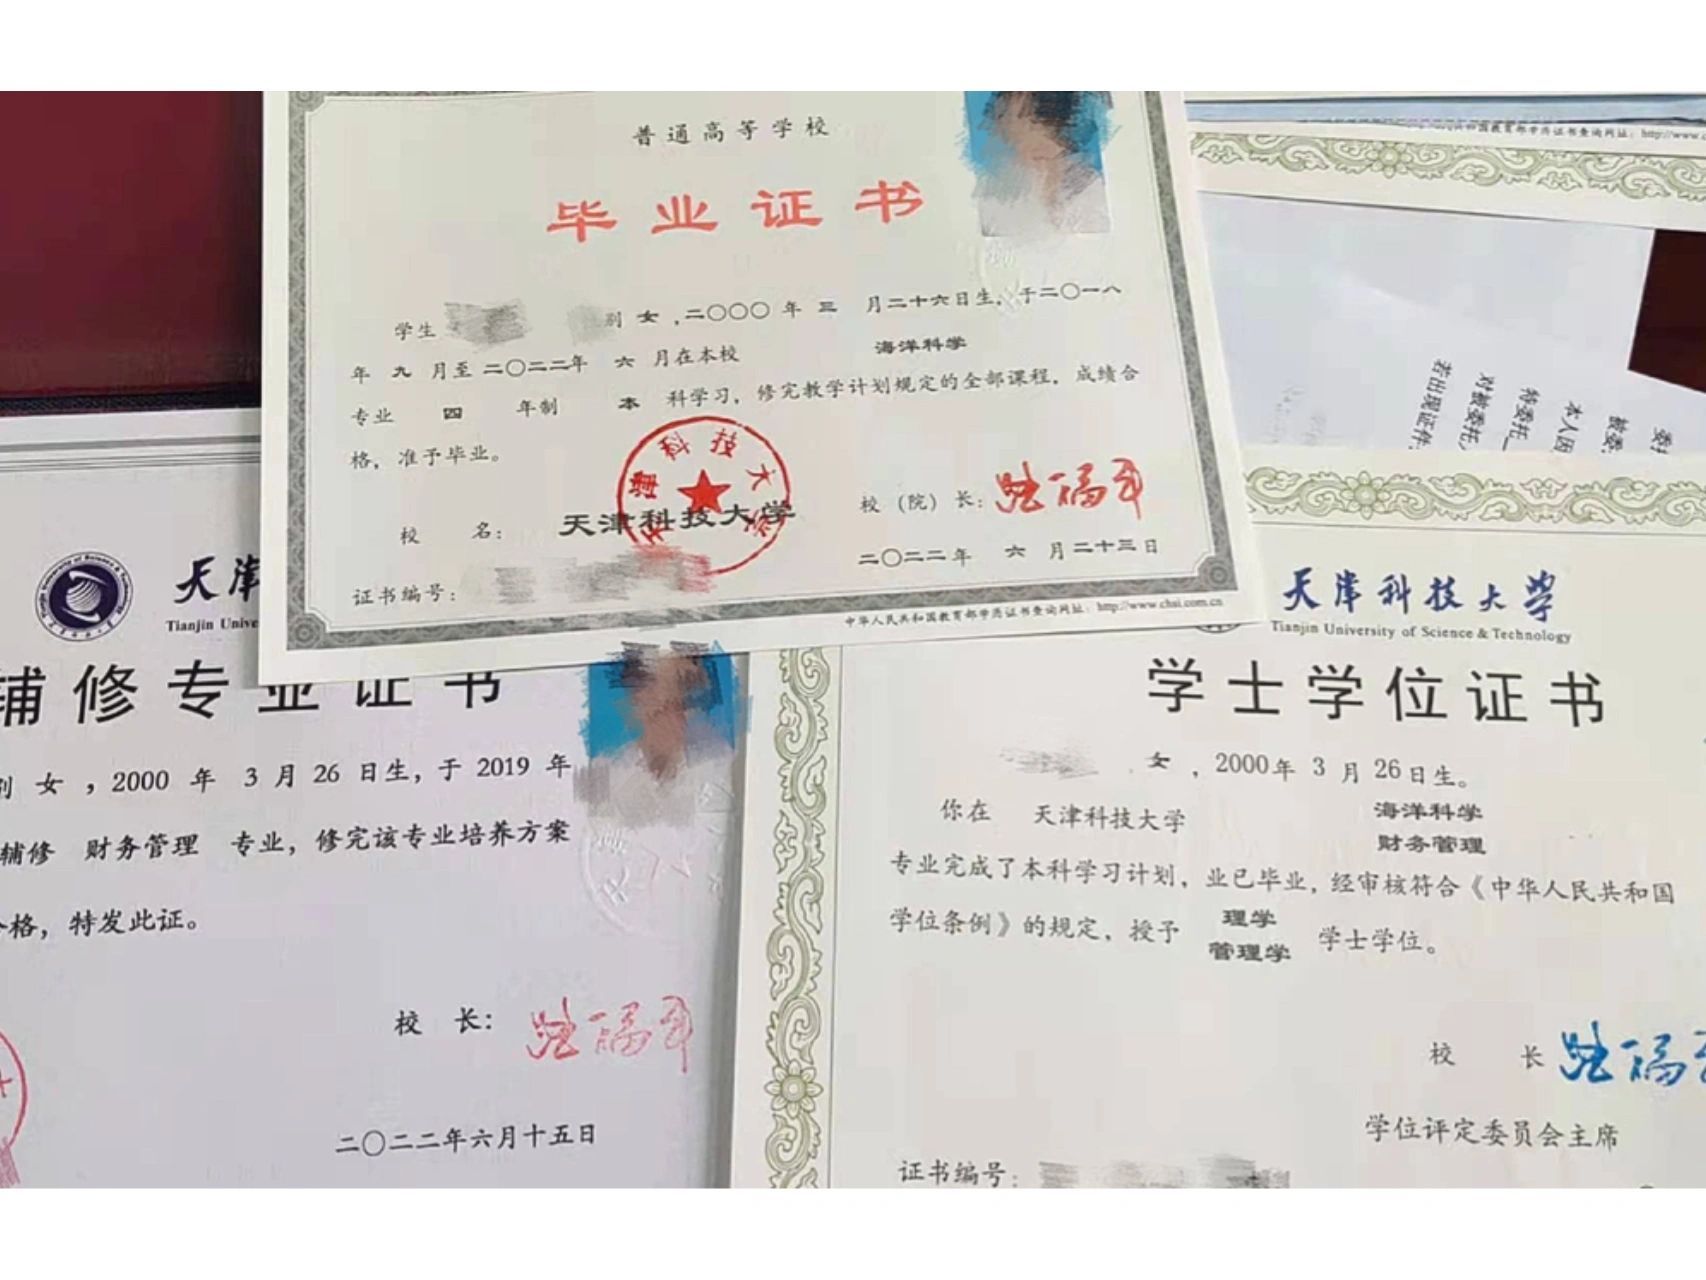 普通高等学校
毕业证书
学生 别 女，二〇〇〇年 三 月二十六日生，于二〇一八
年 九 月至二〇二二年 六 月在本校 海洋科学
专业 四 年制 本 科学习，修完教学计划规定的全部课程，成绩合
格，准予毕业。
校 名：天津科技大学 校（院）长：
二〇二二年 六 月二十三日
证书编号：
中华人民共和国教育部学历证书查询网址：http://www.chsi.com.cn
天津科技大学
共和国教育部学历证书查询网址：http://www.c
委
被委
本人因
特委托
对被委托
若出现证件
天津
Tianjin Unive
辅修专业证书
别 女，2000 年 3 月 26 日生，于 2019 年
辅修 财务管理 专业，修完该专业培养方案
格，特发此证。
校 长：
二〇二二年六月十五日
天津科技大学
Tianjin University of Science & Technology
学士学位证书
女，2000年 3 月 26日生。
你在 天津科技大学 海洋科学
财务管理
专业完成了本科学习计划，业已毕业，经审核符合《中华人民共和国
学位条例》的规定，授予 理学
管理学 学士学位。
校 长
学位评定委员会主席
证书编号：